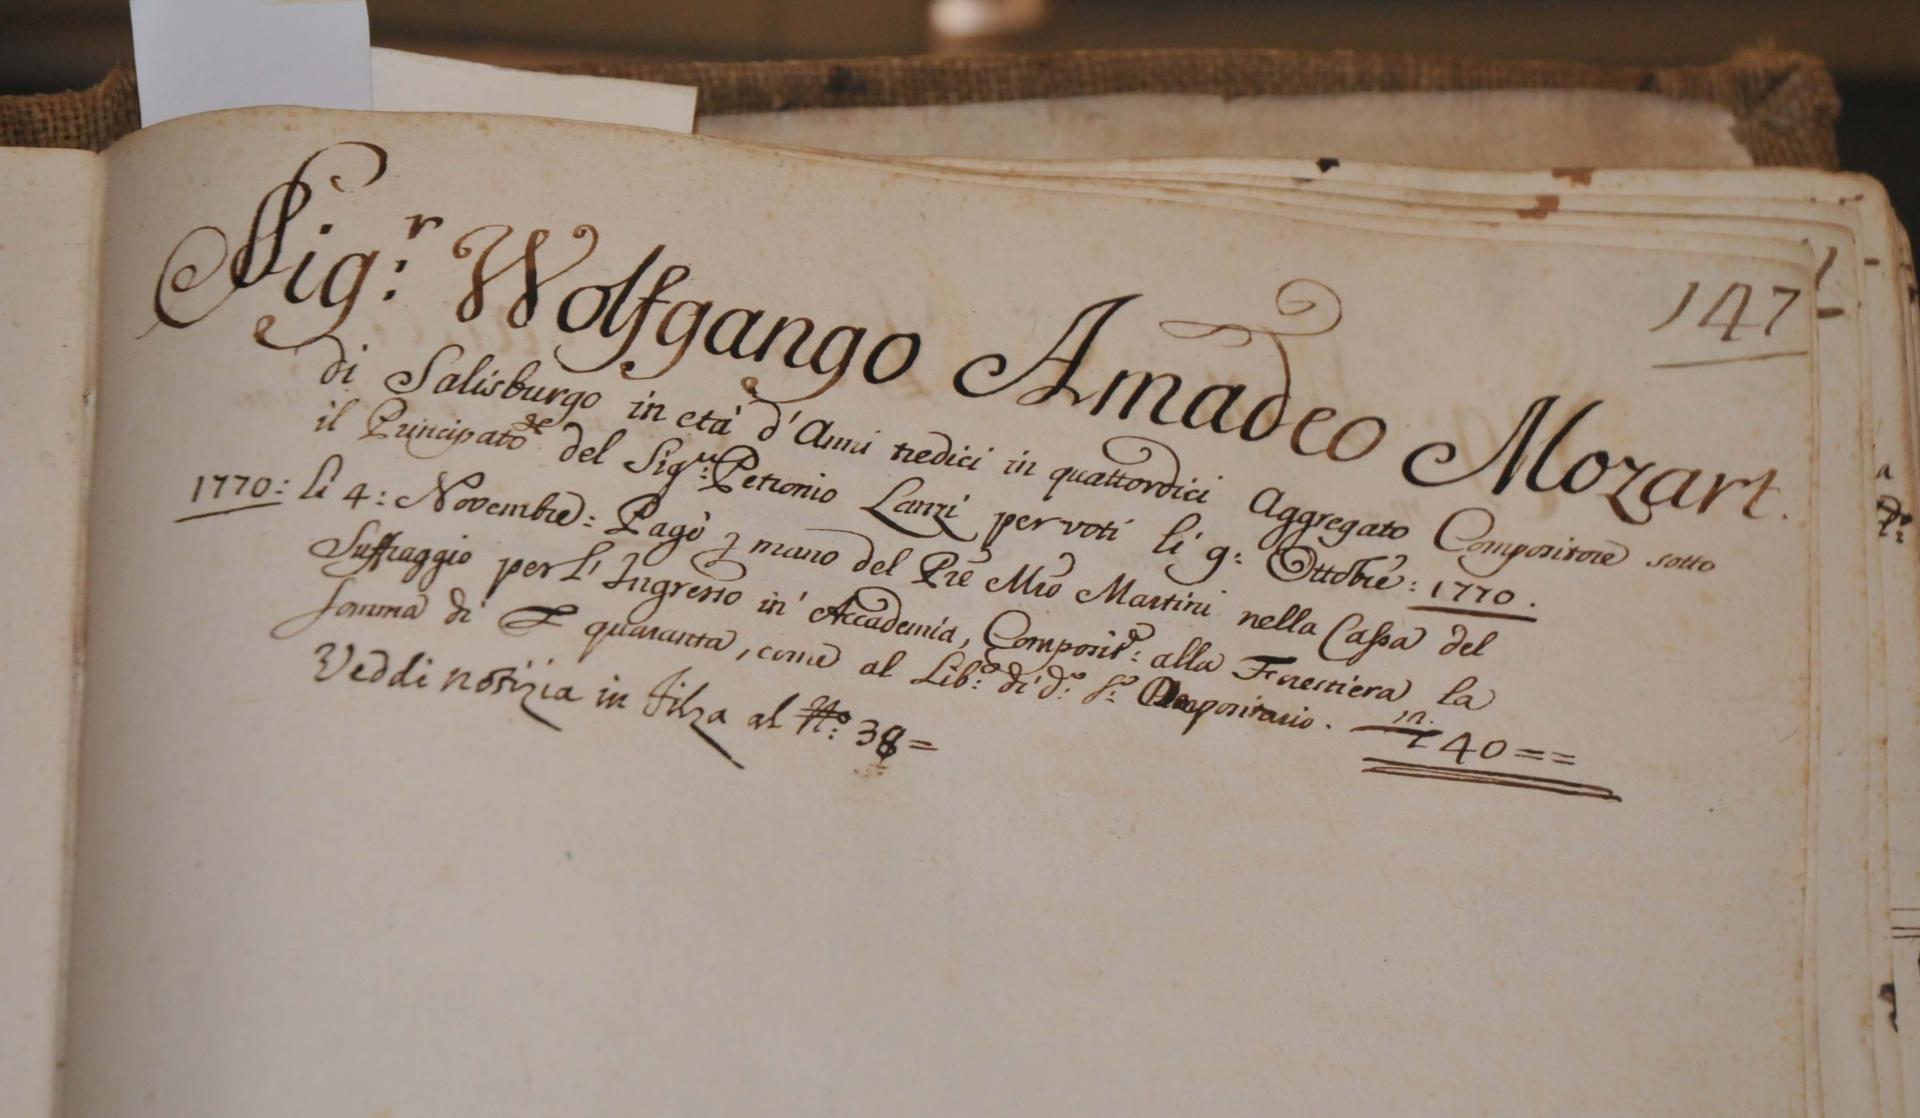 147
Sig.r Wolfgango Amadeo Mozart.
di Salisburgo in età d'Anni tredici in quattordici Aggregato Compositore sotto
il Principato de del Sig.r Petronio Lanzi per voti li 9: Ottobre: 1770.
1770: li 4: Novembre: Pagò p mano del Pre Mro Martini nella Cassa del
Suffraggio per l'Ingresso in' Accademia, Composit.e: alla Forestiera la
somma di £ quaranta, come al Lib.o di d.o S.r Depositario. £ 40==
Veddi notizia in Filza al N.o: 38=